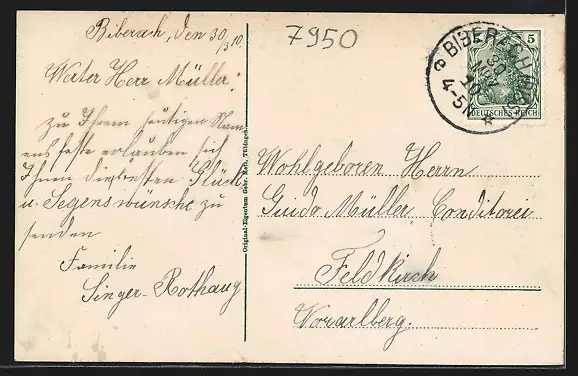 Biberach, den 30/3 10.
Werter Herr Müller!
Zu Ihrem heutigen Nam
ensfeste erlauben sich
Ihnen die besten Glück
u. Segenswünsche zu
senden
Familie
Singer-Rothaug
Original-Eigentum Gebr. Metz, Tübingen
7950
BIBERACH
30
10
4-5N
5
DEUTSCHES REICH
Wohlgeboren Herrn
Guido Müller, Conditorei
Feldkirch
Vorarlberg.